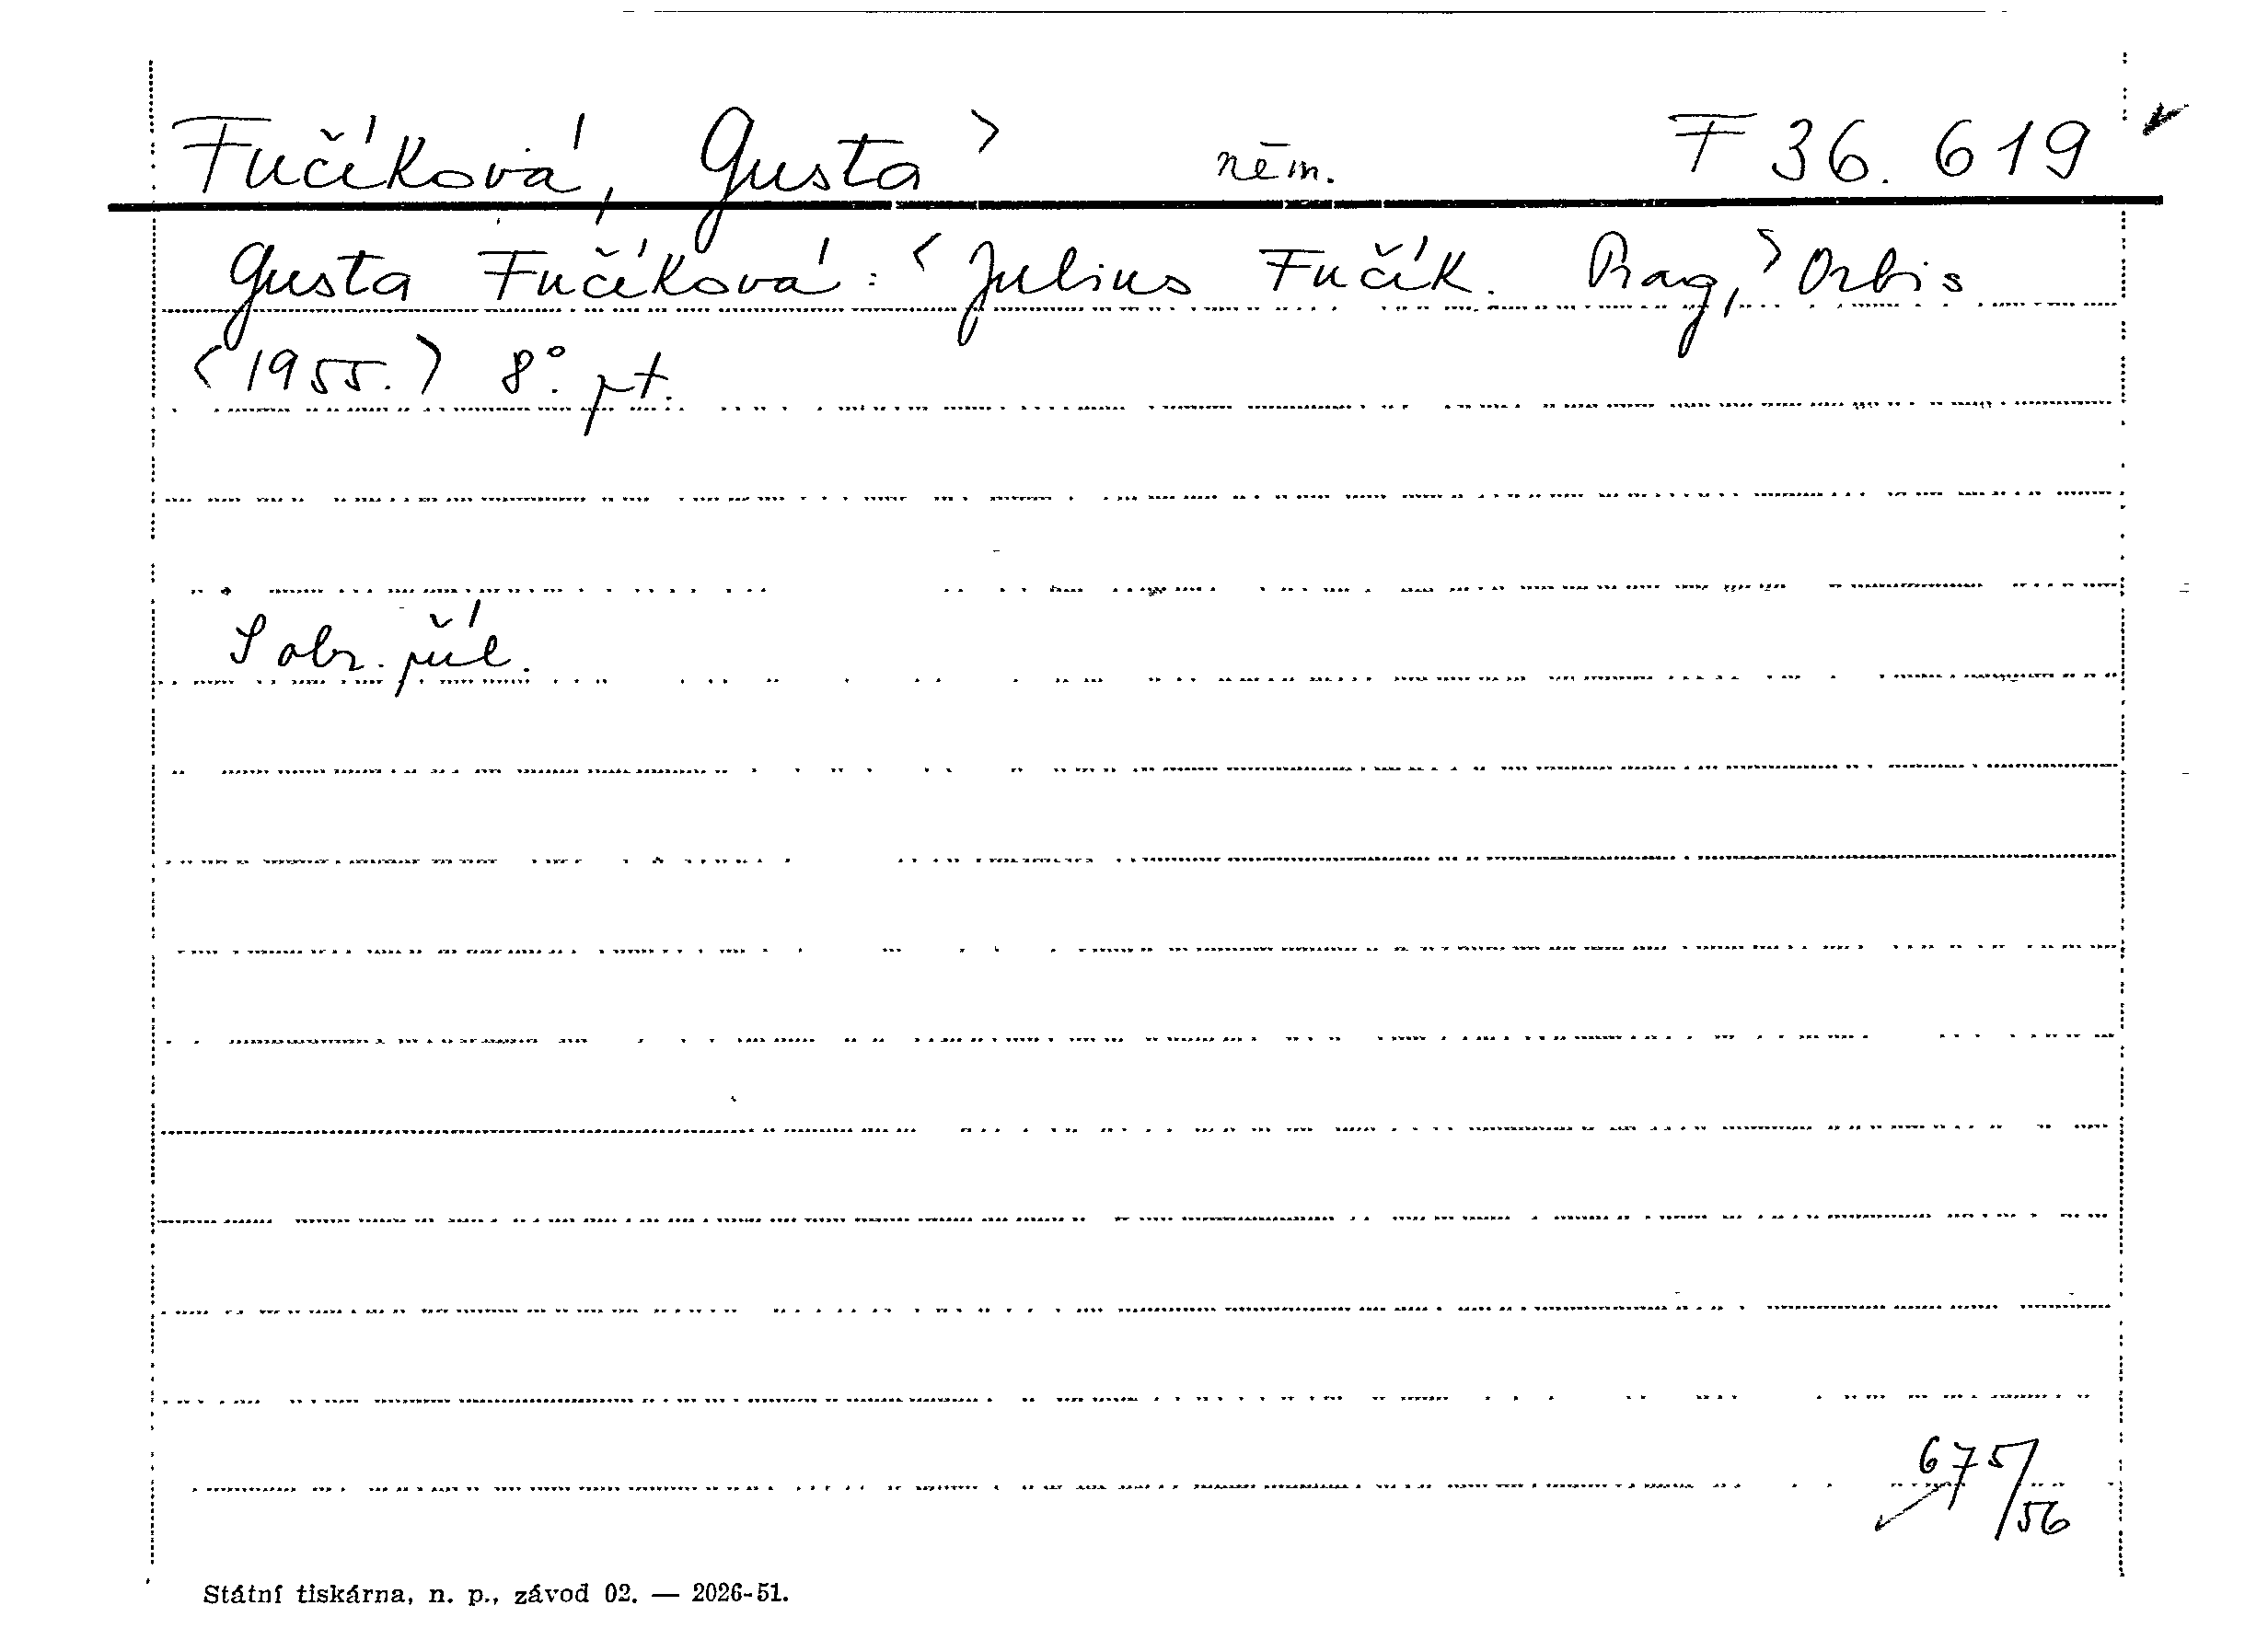 Fučíková, Gusta > něm. F 36.619
Gusta Fučíková: < Julius Fučík. Prag, > Orbis
<1955.> 8°. pt.
S obr. příl.
675/56
Státní tiskárna, n. p., závod 02. — 2026-51.